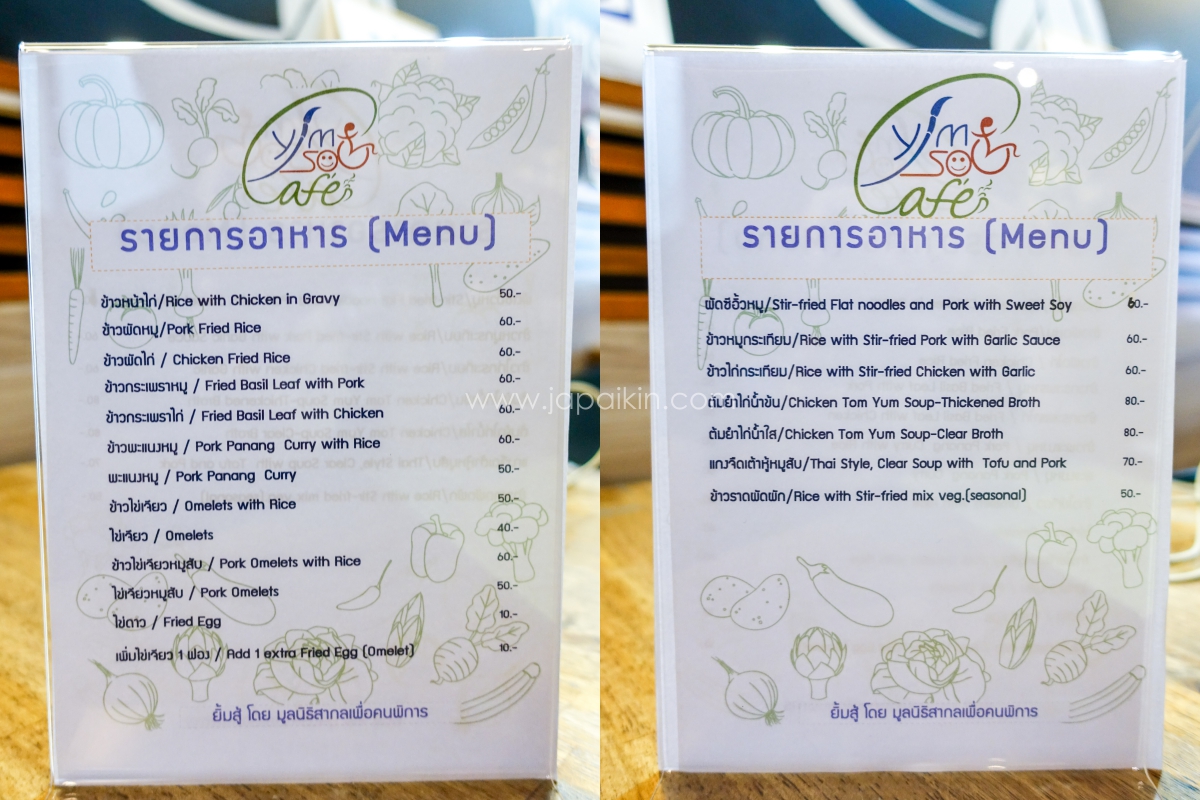 Yim Soo Café
รายการอาหาร (Menu)
ข้าวหน้าไก่/Rice with Chicken in Gravy 50.-
ข้าวผัดหมู/Pork Fried Rice 60.-
ข้าวผัดไก่ / Chicken Fried Rice 60.-
ข้าวกระเพราหมู / Fried Basil Leaf with Pork 60.-
ข้าวกระเพราไก่ / Fried Basil Leaf with Chicken 60.-
ข้าวพะแนงหมู / Pork Panang Curry with Rice 60.-
พะแนงหมู / Pork Panang Curry 50.-
ข้าวไข่เจียว / Omelets with Rice 50.-
ไข่เจียว / Omelets 40.-
ข้าวไข่เจียวหมูสับ / Pork Omelets with Rice 60.-
ไข่เจียวหมูสับ / Pork Omelets 50.-
ไข่ดาว / Fried Egg 10.-
เพิ่มไข่เจียว 1 ฟอง / Add 1 extra Fried Egg (Omelet) 10.-
ยิ้มสู้ โดย มูลนิธิสากลเพื่อคนพิการ
Yim Soo Café
รายการอาหาร (Menu)
ผัดซีอิ้วหมู/Stir-fried Flat noodles and Pork with Sweet Soy 60.-
ข้าวหมูกระเทียม/Rice with Stir-fried Pork with Garlic Sauce 60.-
ข้าวไก่กระเทียม/Rice with Stir-fried Chicken with Garlic 60.-
ต้มยำไก่น้ำข้น/Chicken Tom Yum Soup-Thickened Broth 80.-
ต้มยำไก่น้ำใส/Chicken Tom Yum Soup-Clear Broth 80.-
แกงจืดเต้าหู้หมูสับ/Thai Style, Clear Soup with Tofu and Pork 70.-
ข้าวราดผัดผัก/Rice with Stir-fried mix veg.(seasonal) 50.-
ยิ้มสู้ โดย มูลนิธิสากลเพื่อคนพิการ
www.japaikin.com